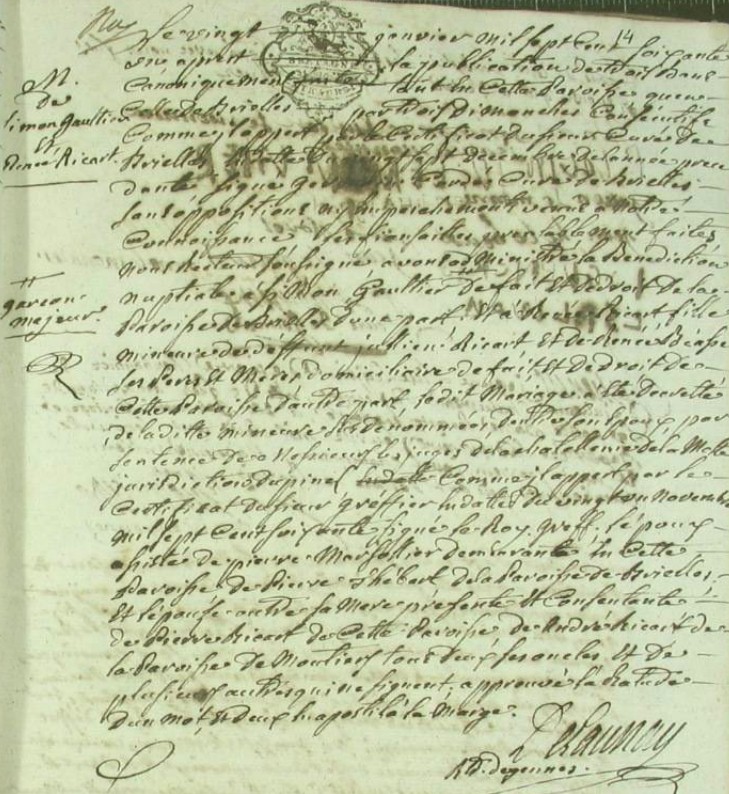 Le vingt janvier mil sept cent soixante
un apres la publication de trois bans
canoniquement faite tant en cette Paroisse qu'en
celle de Brielles par trois dimanches consecutifs
comme il appert par le certificat du sieur Curé de
Brielles en datte du vingt sept decembre de l'année prece
dante signé Curé de Brielles
sans oppositions ny empeschement venue a notre
connaissance les fiansailles prealablement faites
nous Recteur soussigné avons administré la Benediction
nuptiale a Simon Gaultier de fait et de droit de la
Paroisse de Brielles d'une part, et a Renée Ricart fille
mineure de deffunt jullien Ricart et de Renée
ses Pere et Mere, domiciliaire de fait et de droit de
cette Paroisse d'autre part, ledit Mariage a été decretté
de la ditte mineure
sentence de Messieurs les juges de la chatellenie de la Motte
jurisdiction du pinel comme il appert par le
certificat du sieur greffier en datte du vingt un Novembre
mil sept cent soixante signé le Roy greff. l'epoux
assisté de pierre Marsollier demeurante en cette
Paroisse de Pierre Thébert de la Paroisse de Brielles,
et l'épouse outre sa Mere présente et consentante
de Pierre Ricart de cette Paroisse, de André Ricart de
la Paroisse de Moutiers tous deux ses oncles et de
plusieurs autres qui ne signent, approuvé la rature
d'un mot, et deux apostilles en Marge.
Delaunay
R.r degennes.
14
M.
de
Simon Gaultier
et
Renée Ricart.
garcon
majeur.